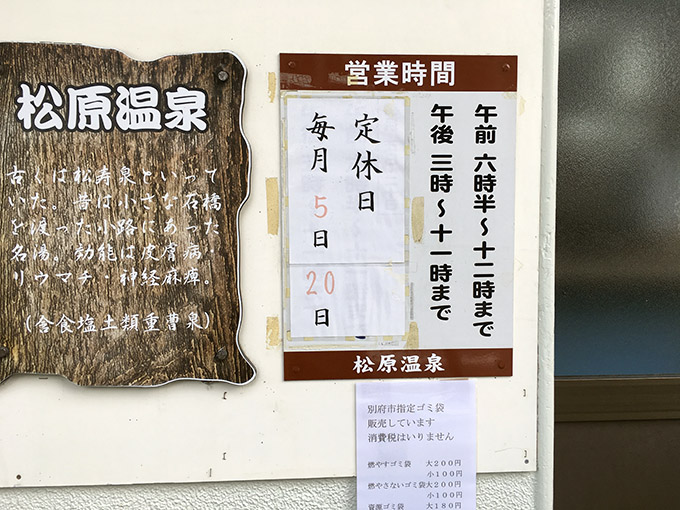 松原温泉
古くは松寿泉といって
いた。昔は小さな石橋
を渡った小路にあった
名湯。効能は皮膚病、
リウマチ・神経麻痺。
(含食塩土類重曹泉)
営業時間
午前 六時半～十二時まで
午後 三時～十一時まで
定休日
毎月5日
20日
松原温泉
別府市指定ゴミ袋
販売しています
消費税はいりません
燃やすゴミ袋 大200円
小100円
燃やさないゴミ袋大200円
小100円
資源ゴミ袋 大180円